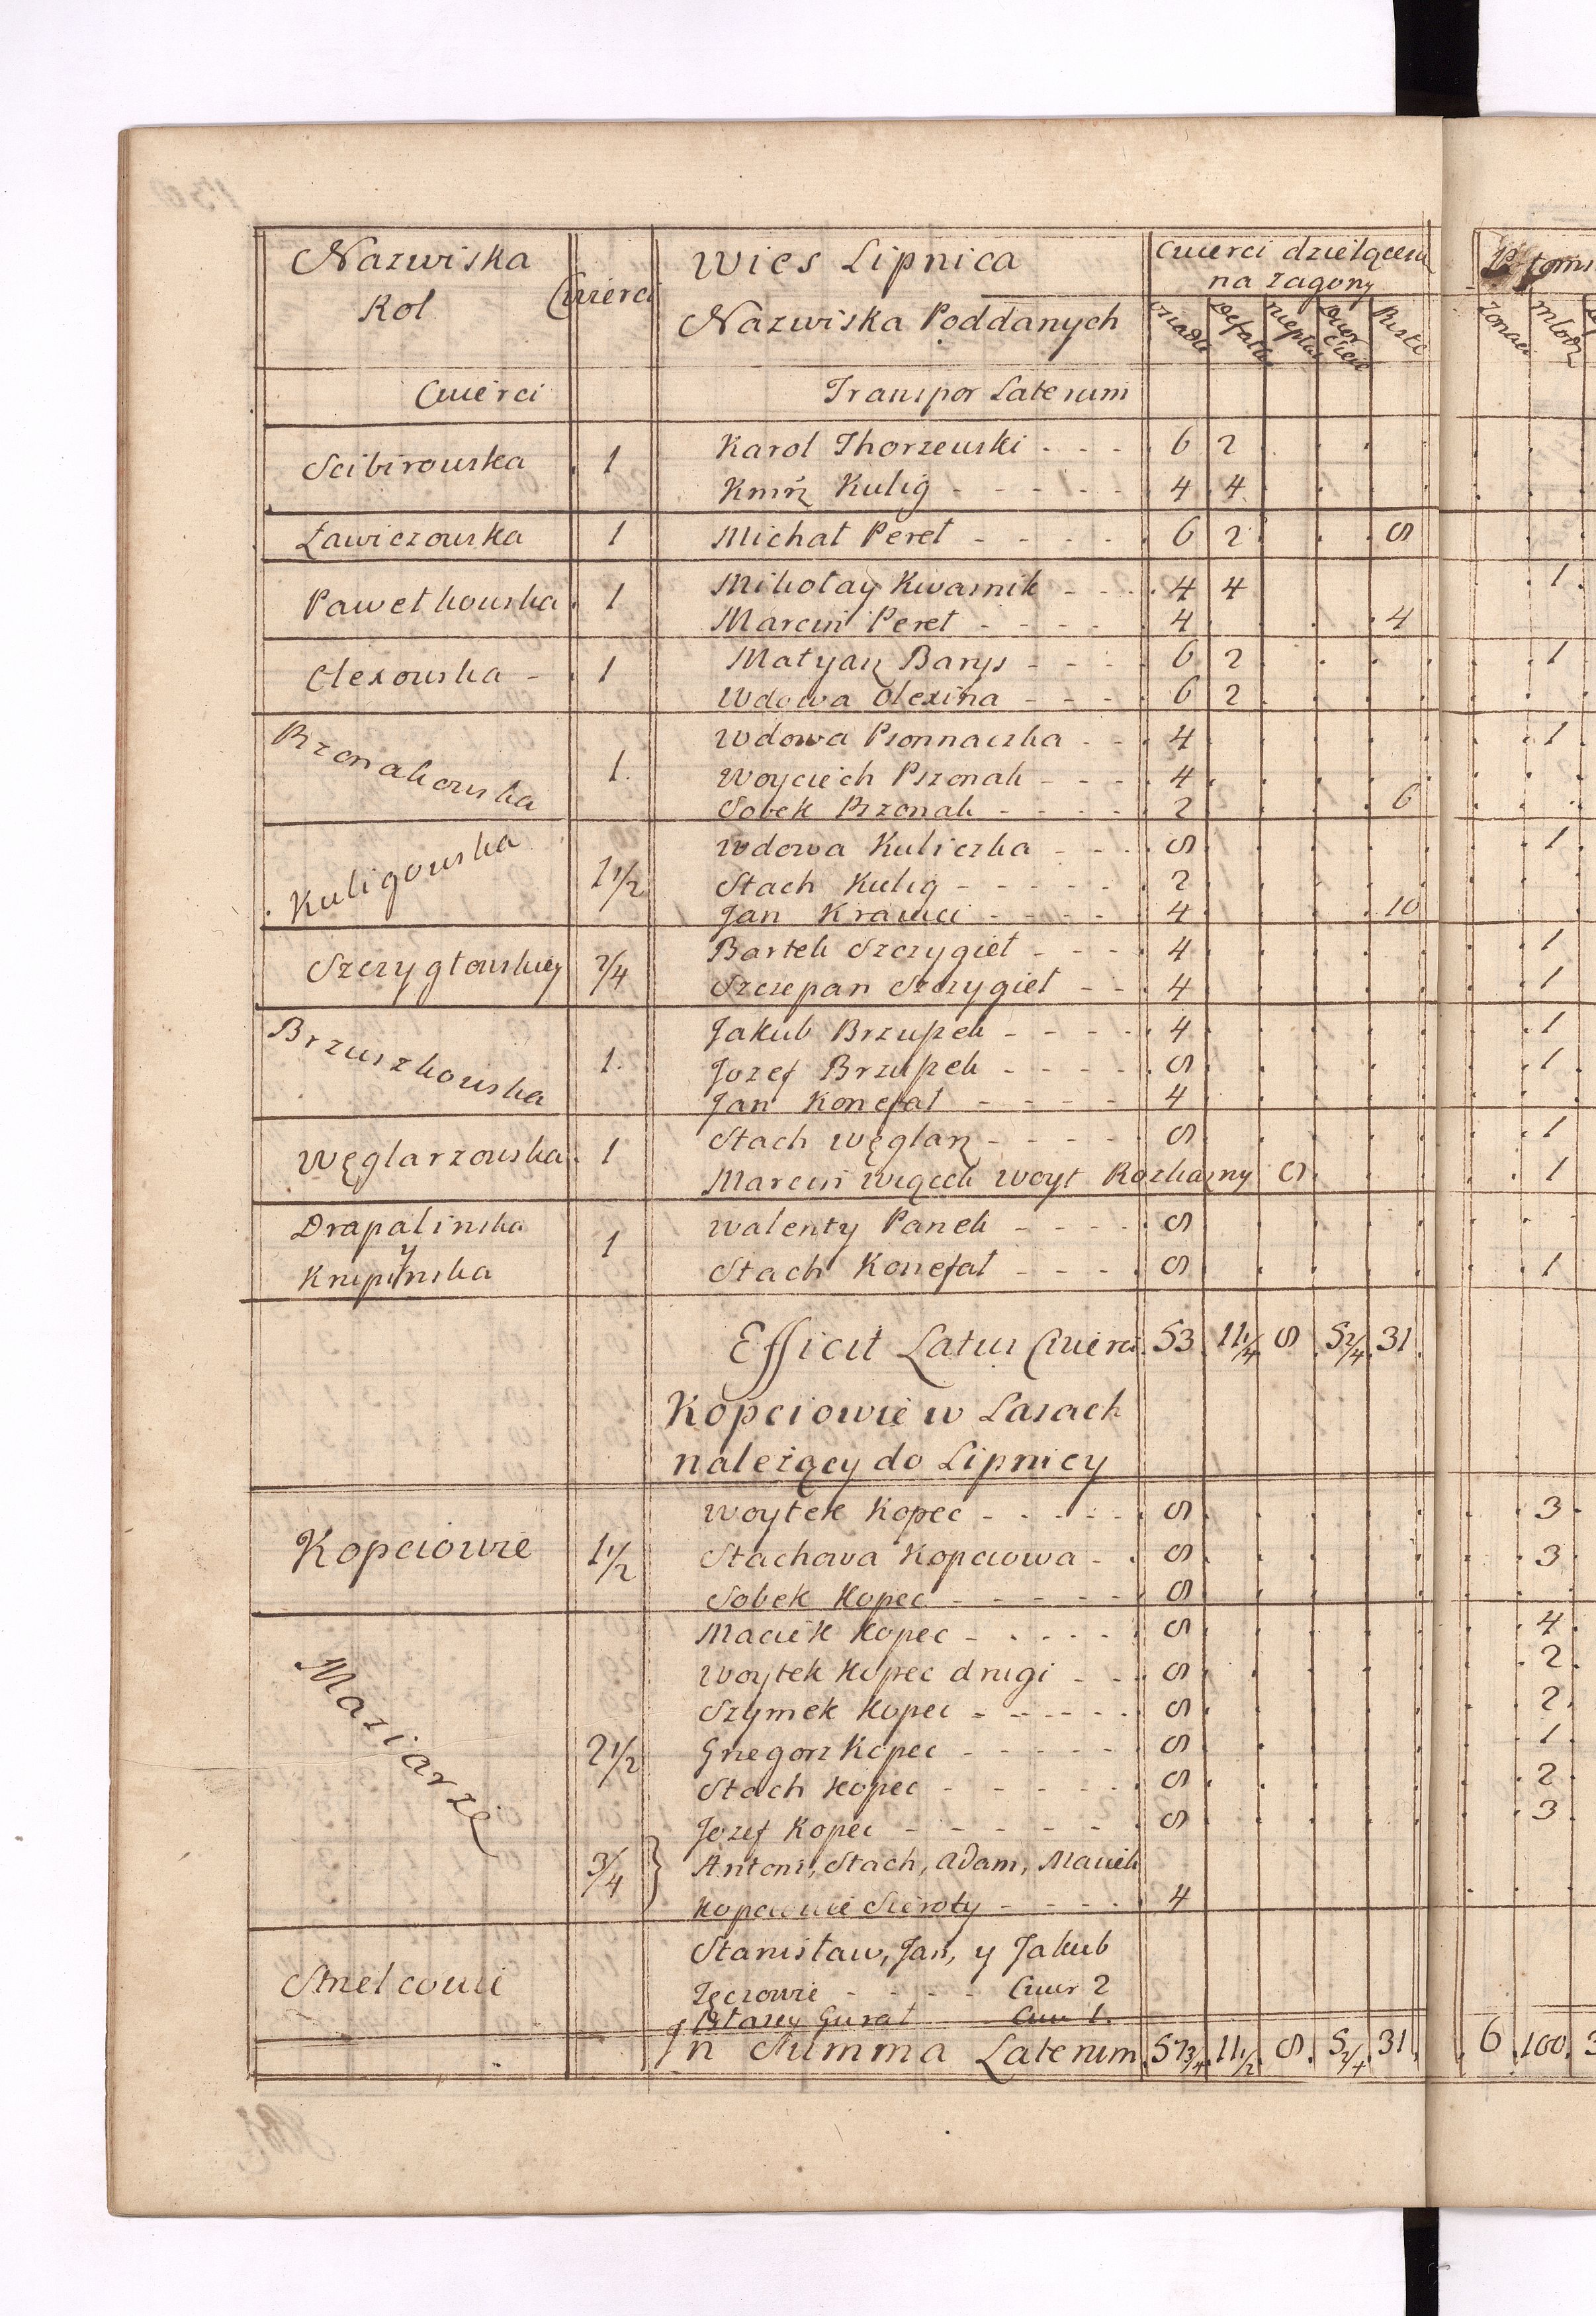 Nazwiska
Rol
Cwierci
Wies Lipnica
Nazwiska Poddanych
Cwierci dzielącem
na zagony
osiadłe
Defalk
Puste
Zonaci
młodz
Cwierci
Transpor Laterum
Scibirowska 1 Karol Thorzewski - - - 6 2
Kmiń Kulig - - - - - 4 4
Ławiczowska 1 Michał Peret - - - - 6 2 8
Pawełkowska 1 Mikołay Kwasnik - - - 4 4 1
Marcin Peret - - - - 4 4
Olexowska - 1 Matyaz Barys - - - 6 2 1
Wdowa Olexina - - - 6 2
Pszonakowska 1 Wdowa Psonnaczka - - 4 1
Woyciech Pszonak - - - 4
Sobek Pszonak - - - - 2 6
Kuligowska 1 1/2 Wdowa Kuliczka - - - 8 1
Stach Kulig - - - - - 2
Jan Krawci - - - - 4 10
Szczygłowskiey 2/4 Bartek Szczygieł - - - 4 1
Szczepan Szczygieł - - 4 1
Brzuszkowska 1 Jakub Brzuszek - - - - 4 1
Jozef Brzuszek - - - - 8 1
Jan Konefał - - - - 4
Węglarzowska 1 Stach Węglarz - - - - 8 1
Marcin Wącek Woyt Rozkazny 8 1
Drapalinska
y
Knipinska
1 Walenty Panek - - - - 8
Stach Konefał - - - 8 1
Efficit Latus Cwierci 53 11 1/4 8 5 2/4 31
Kopciowie w Lasach
należący do Lipnicy
Kopciowie 1 1/2 Woytek Kopec - - - - - 8 3
Stachowa Kopciowa - - 8 3
Sobek Kopec - - - - - 8
Maziarze 2 1/2 Maciek Kopec - - - - - 8 4
Woytek Kopec drugi - - 8 2
Szymek Kopec - - - - - 8 2
Grzegorz Kopec - - - - - 8 1
Stach Kopec - - - - - 8 2
Jozef Kopec - - - - - - 8 3
3/4 } Antoni, Stach, Adam, Maciek
Kopciowie Sieroty - - - - 4
Strzelcowie Stanisław, Jan, y Jakub
Tęczowie - - - - Cwier 2
Błazey Gurał Cwi 1.
In Summa Laterum 57 3/4 11 1/2 8 5 2/4 31 6 100 3